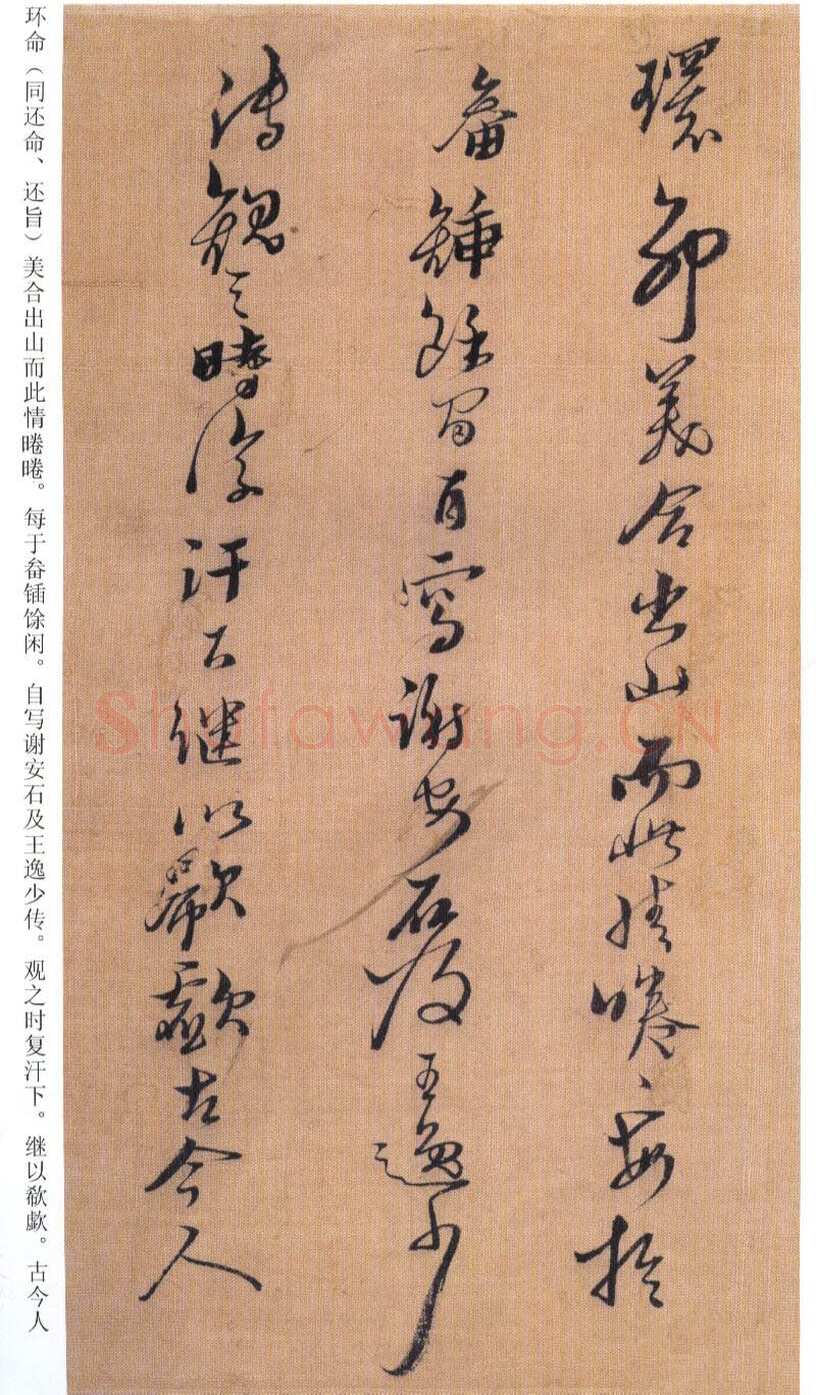 環命美合出山而此情睠〻每於
畚鍤餘閒自寫謝安石及王逸少
傳觀之時復汗下繼以欷歔古今人
环命（同还命、还旨）美合出山而此情睠睠。每于畚锸馀闲。自写谢安石及王逸少传。观之时复汗下。继以欷歔。古今人
Shufawang.CN